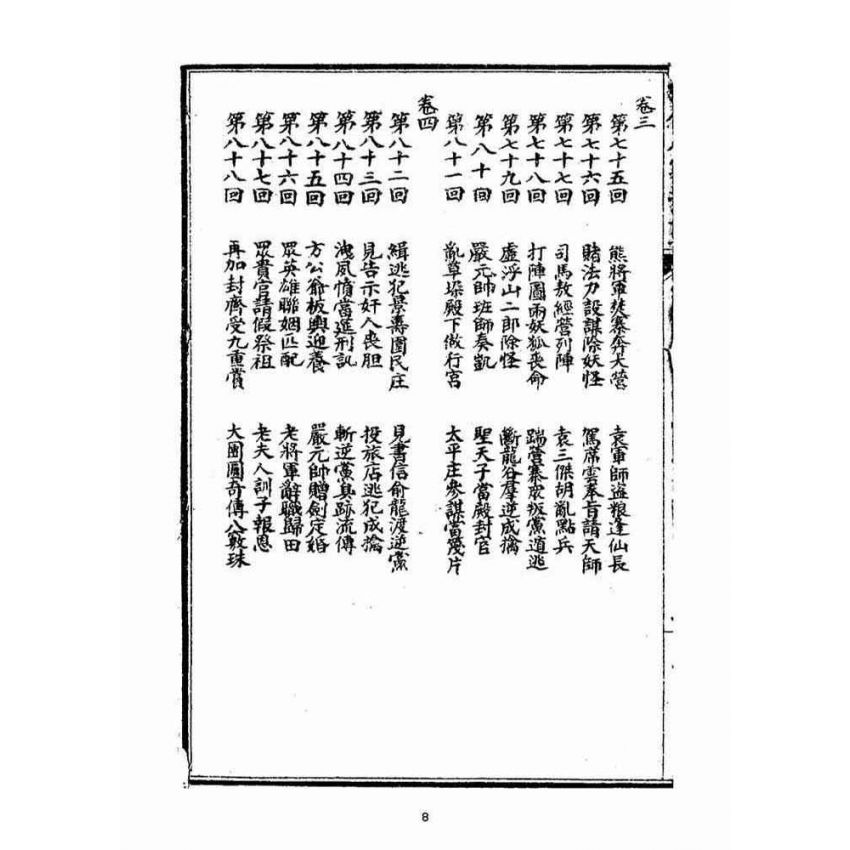 卷三
第七十五回 熊將軍焚寨奔大營 袁軍師盗粮逢仙長
第七十六回 賭法力設謀除妖怪 駕席雲奉旨請天師
第七十七回 司馬敖經營列陣 袁三傑胡亂點兵
第七十八回 打陣圖兩妖狐喪命 踹營寨眾叛黨逍逃
第七十九回 虛浮山二郎除怪 斷龍谷羣逆成擒
第八十回 嚴元帥班師奏凱 聖天子當殿封官
第八十一回 亂草垛殿下做行宮 太平庄參謀當 片
卷四
第八十二回 緝逃犯景壽圍民庄 見書信俞龍渡逆黨
第八十三回 見告示奸人喪胆 投旅店逃犯成擒
第八十四回 洩夙憤當遭刑訊 斬逆黨真跡流傳
第八十五回 方公爺板輿迎養 嚴元帥贈劍定婚
第八十六回 眾英雄聯姻匹配 老將軍辭職歸田
第八十七回 眾貴官請假祭祖 老夫人訓子報恩
第八十八回 再加封齊受九重賞 大團圓奇傳八寶珠
8